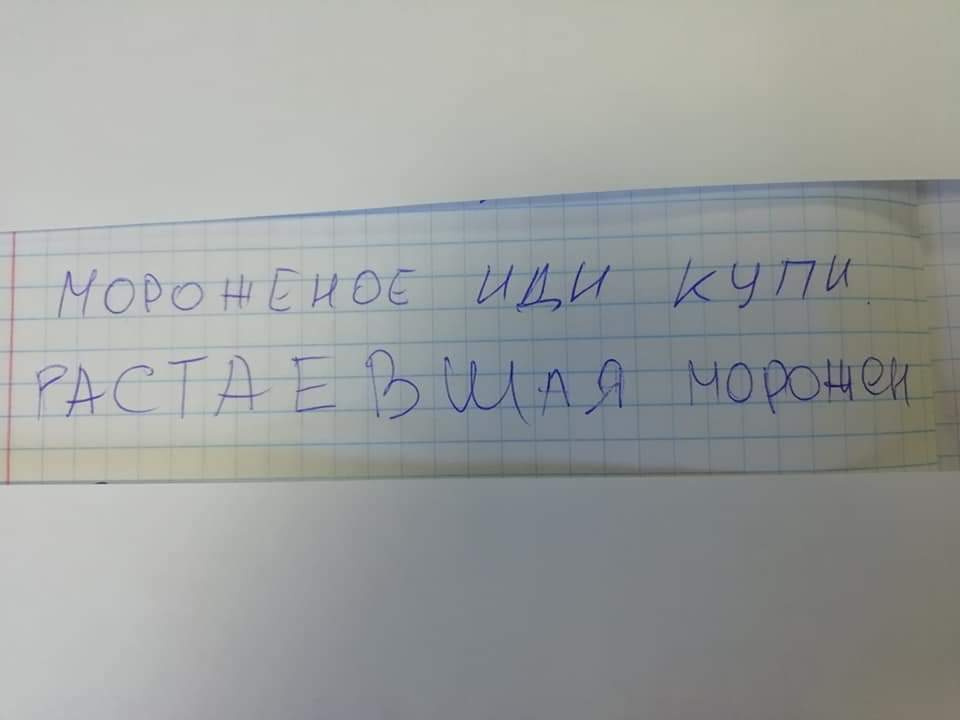 МОРОЖЕНОЕ ИДИ КУПИ
РАСТАЕВШАЯ МОРОЖЕН